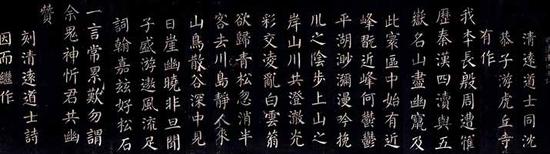 清遠道士同沈
恭子游虎丘寺
有作
我夲長殷周遭罹
歷秦漢四瀆與五
嶽名山盡幽竄及
此寰區中始有近
峰翫近峰何鬱鬱
平湖渺瀰漫吟挽
川之陰步上山之
岸山川共澄澈光
彩交凌亂白雲蓊
欲歸青松忽消半
客去川島靜人來
山鳥散谷深中見
日崖幽曉非旦聞
子盛游遨風流足
詞翰嘉茲好松石
一言常累歎勿謂
余鬼神忻君共幽
贊
刻清遠道士詩
因而繼作